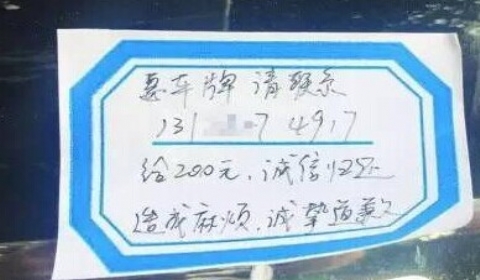 要车牌 请联系
131 7 4917
给200元,诚信归还
造成麻烦,诚挚道歉